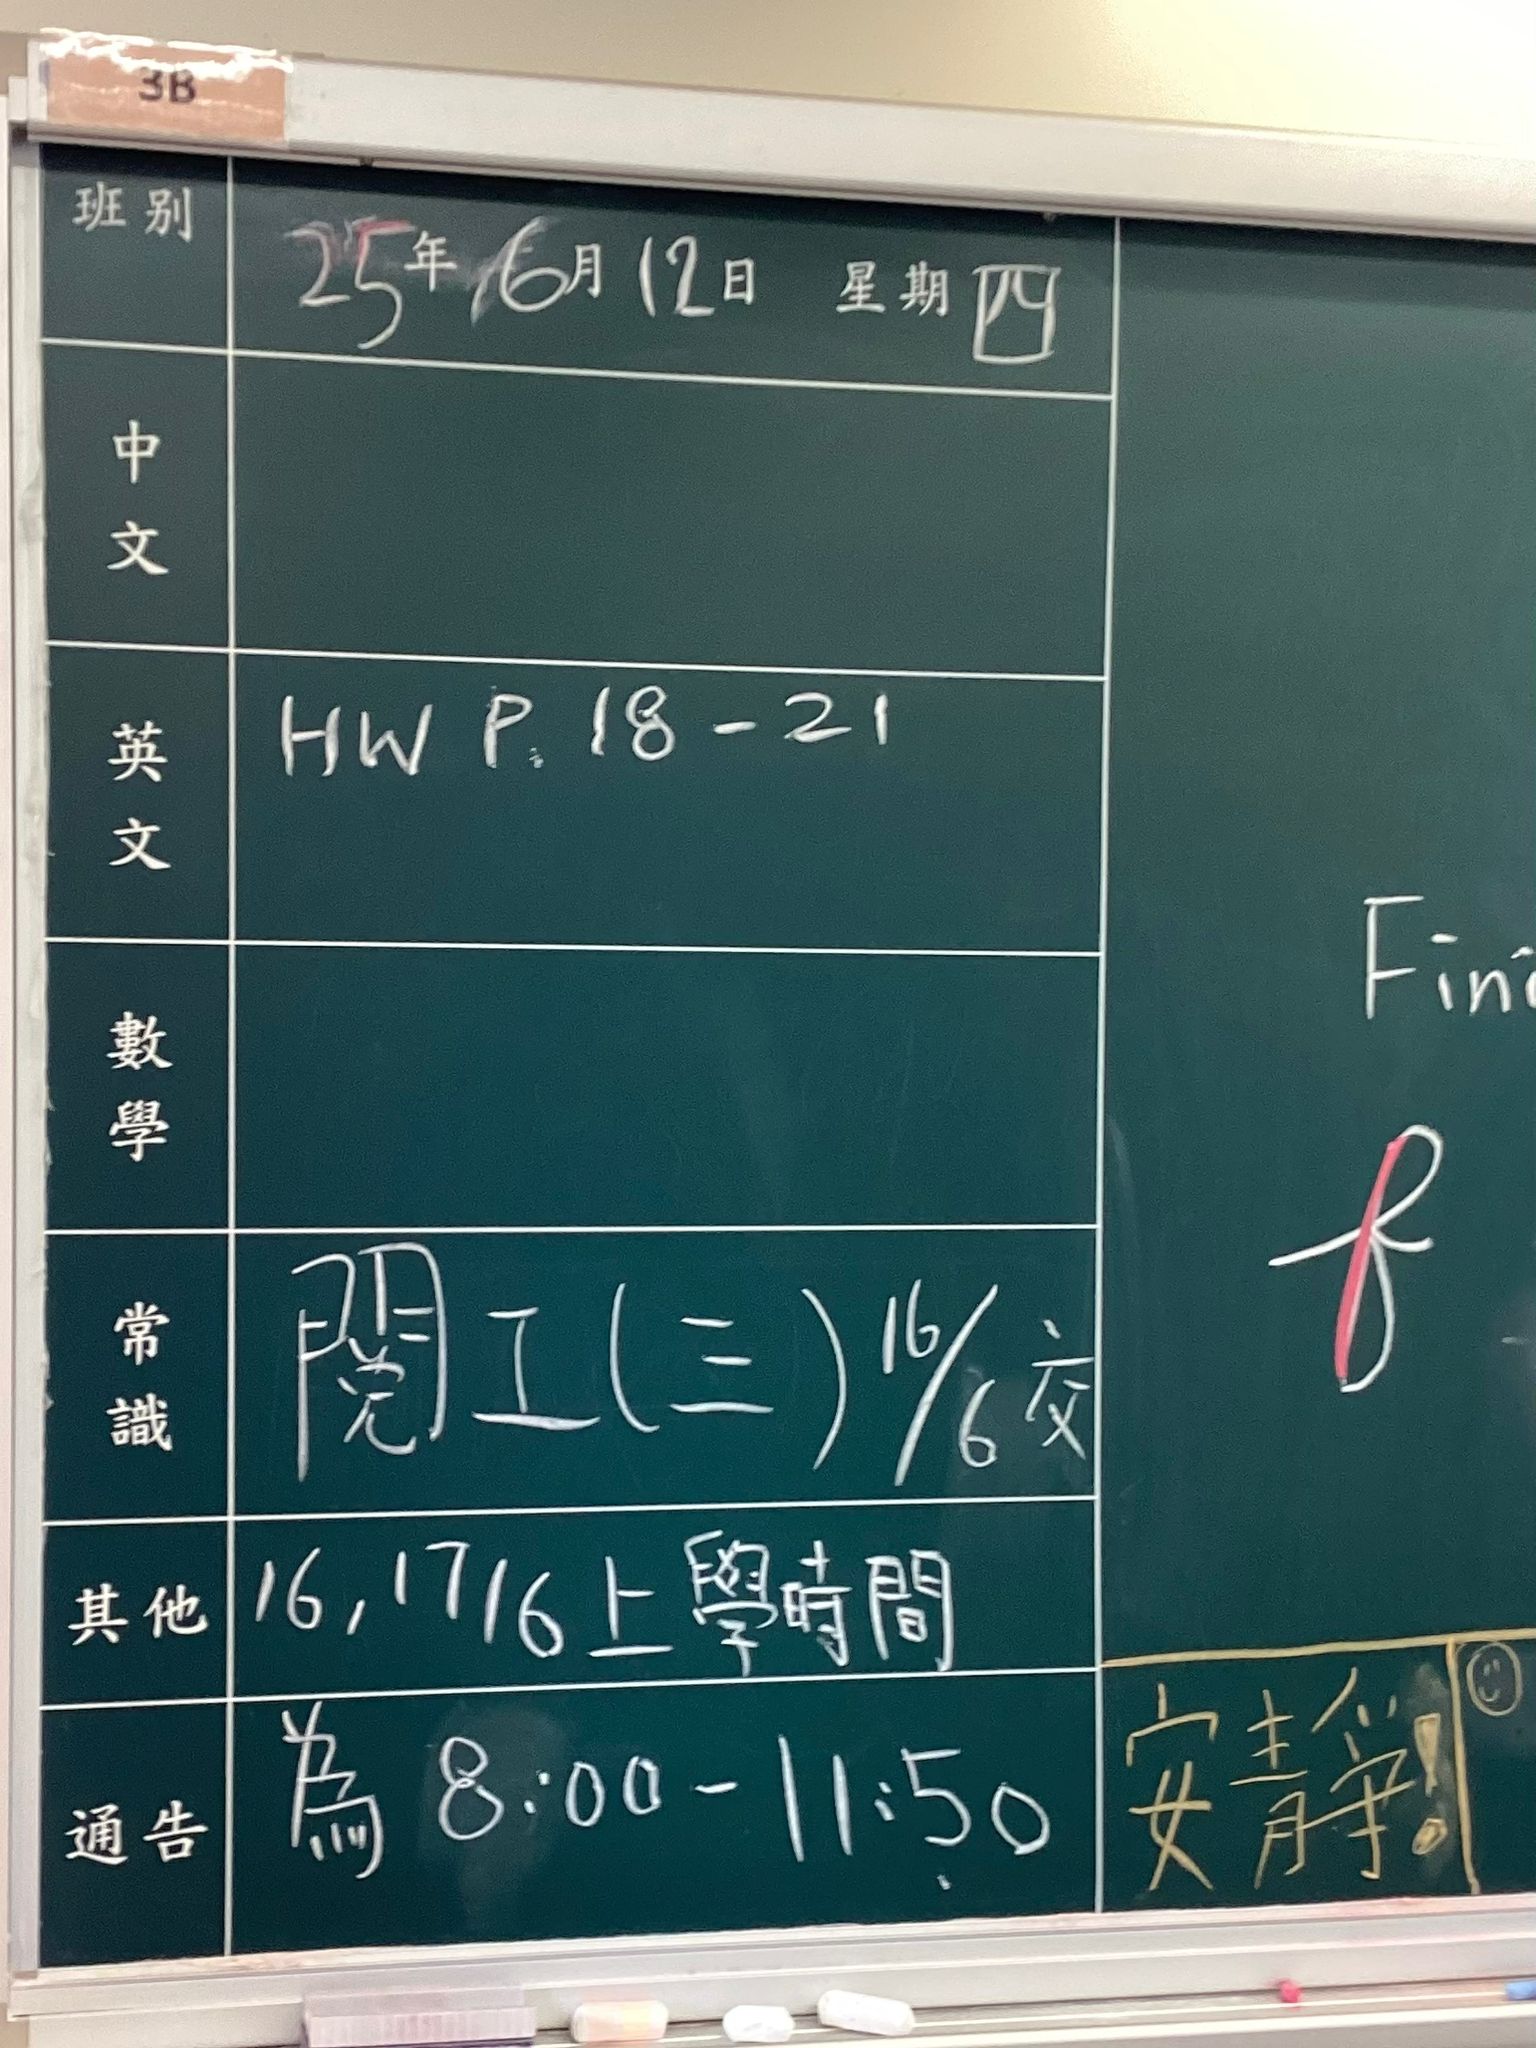 3B
班別 25年6月12日 星期四
中文
英文 HW P. 18 - 21
數學
常識 閱工(三) 16/6交
其他 16, 17/6上學時間
通告 為 8:00 - 11:50
Fin
f
安靜!